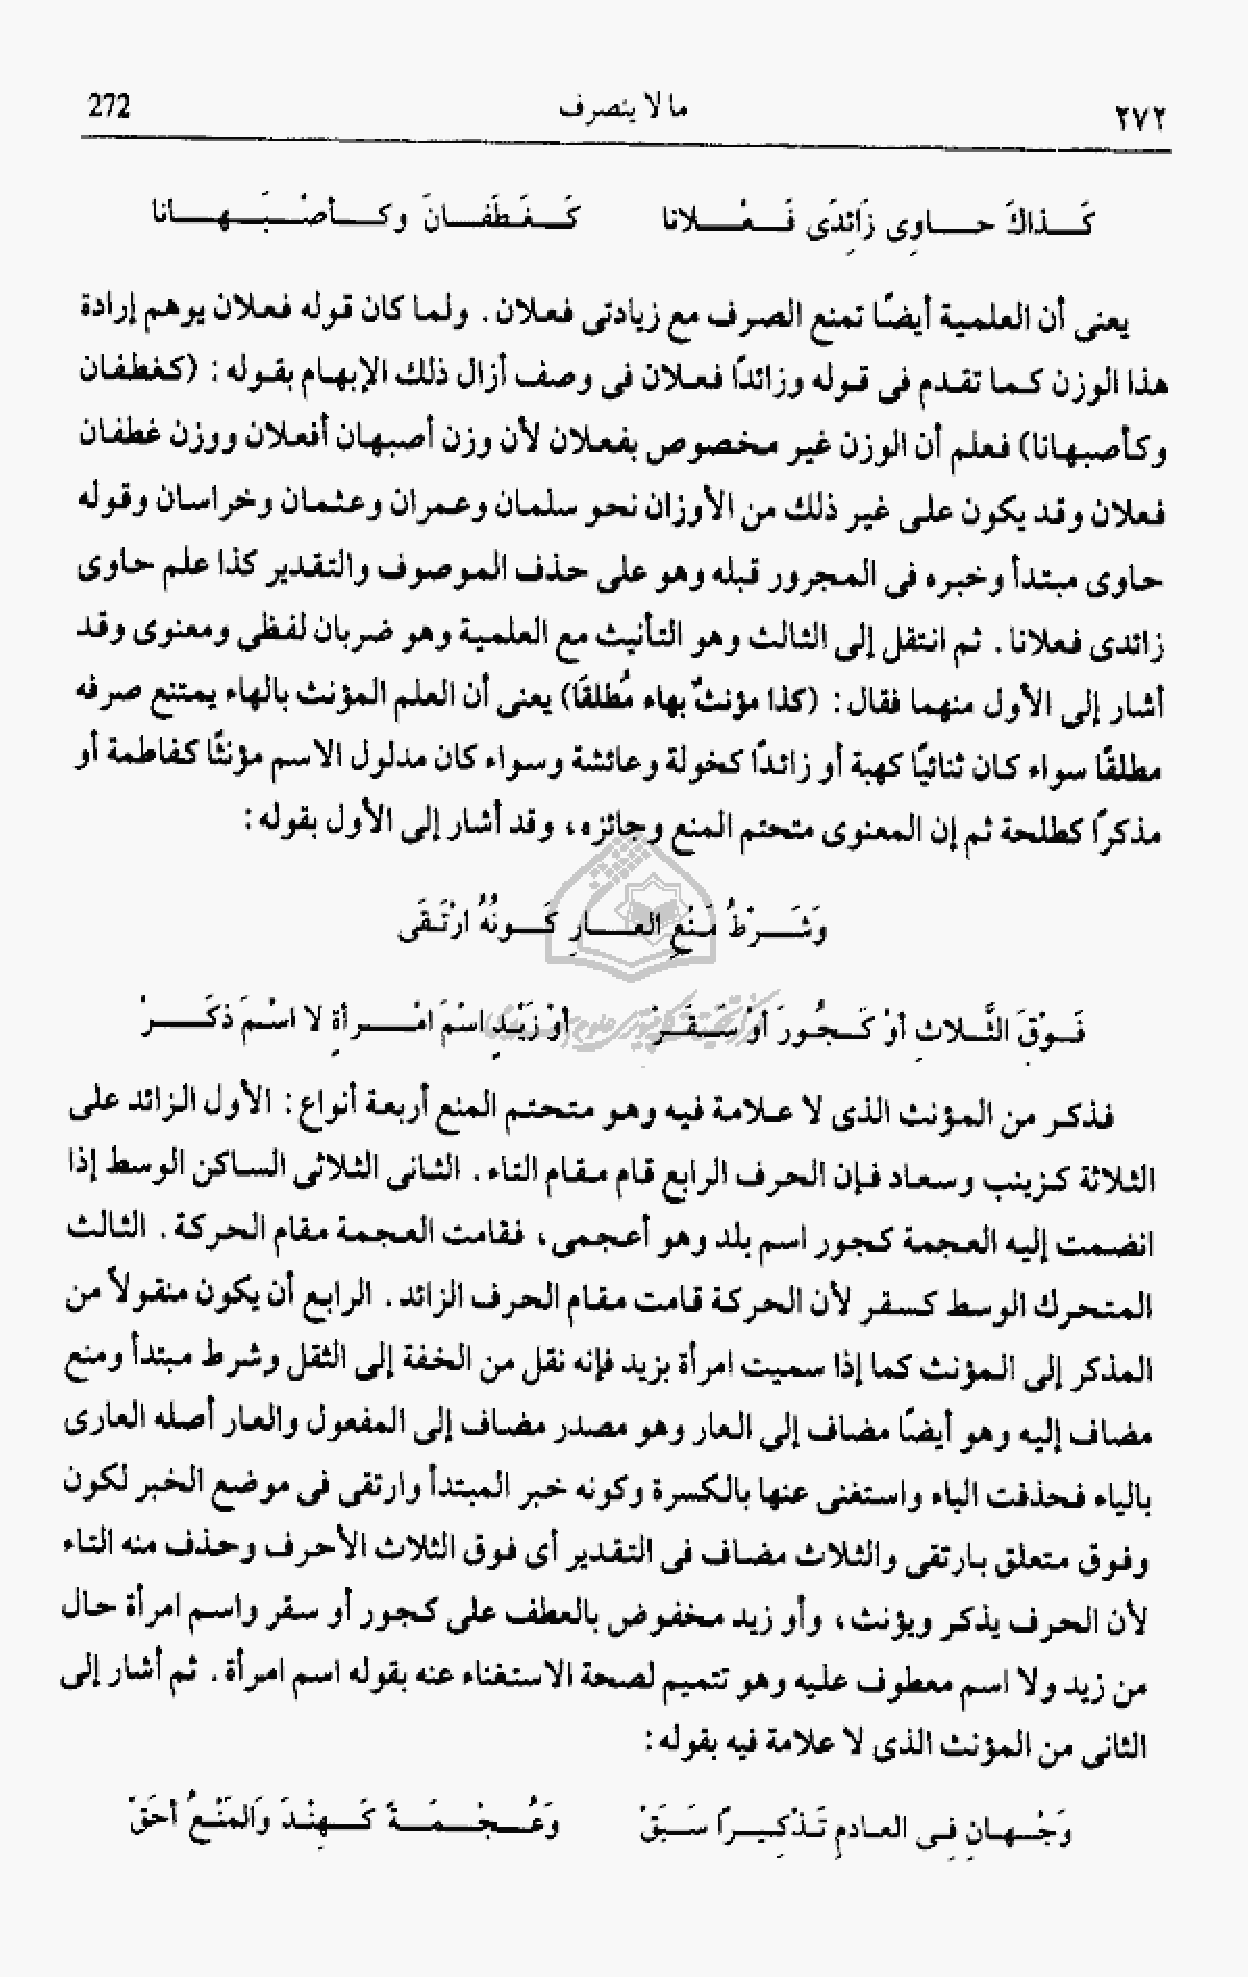 ٢٧٢ ما لا ينصرف 272
كَـذاكَ حـاوِى زَائِدَى فَـعْـلانا كَـغَـطَـفَـانَ وكـأصْـبَـهـانا
يعنى أن العلمية أيضًا تمنع الصرف مع زيادتى فعلان . ولما كان قوله فعلان يوهم إرادة
هذا الوزن كما تقدم فى قوله وزائداً فعلان فى وصف أزال ذلك الإبهام بقوله : (كغطفان
وكأصبهانا) فعلم أن الوزن غير مخصوص بفعلان لأن وزن أصبهان أفعلان ووزن غطفان
فعلان وقد يكون على غير ذلك من الأوزان نحو سلمان وعمران وعثمان وخراسان وقوله
حاوى مبتدأ وخبره فى المجرور قبله وهو على حذف الموصوف والتقدير كذا علم حاوى
زائدى فعلانا . ثم انتقل إلى الثالث وهو التأنيث مع العلمية وهو ضربان لفظى ومعنوى وقد
أشار إلى الأول منهما فقال : (كذا مؤنثٌ بهاء مُطلقًا) يعنى أن العلم المؤنث بالهاء يمتنع صرفه
مطلقًا سواء كان ثنائيًا كهبة أو زائداً كخولة وعائشة وسواء كان مدلول الاسم مؤنثًا كفاطمة أو
مذكرًا كطلحة ثم إن المعنوى متحتم المنع وجائزه ، وقد أشار إلى الأول بقوله :
وَشَـرْطُ مَـنْعِ العـارِ كَـونُهُ ارْتَـقَى
فَـوْقَ الـثَّلاثِ أوْ كَـجُـورَ أوْ سَـقَـرْ أوْ زَيْـدٍ اسْمَ امْـرأةٍ لا اسْـمَ ذَكَـرْ
فذكـر من المؤنث الذى لا علامة فيه وهو متحتم المنع أربعة أنواع : الأول الزائد على
الثلاثة كزينب وسعاد فإن الحرف الرابع قام مقام التاء . الثانى الثلاثى الساكن الوسط إذا
انضمت إليه العجمة كجور اسم بلد وهو أعجمى ، فقامت العجمة مقام الحركة . الثالث
المتحرك الوسط كسقر لأن الحركة قامت مقام الحرف الزائد . الرابع أن يكون منقولاً من
المذكر إلى المؤنث كما إذا سميت امرأة بزيد فإنه نقل من الخفة إلى الثقل وشرط مبتدأ ومنع
مضاف إليه وهو أيضًا مضاف إلى العار وهو مصدر مضاف إلى المفعول والعار أصله العارى
بالياء فحذفت الياء واستغنى عنها بالكسرة وكونه خبر المبتدأ وارتقى فى موضع الخبر لكون
وفوق متعلق بارتقى والثلاث مضاف فى التقدير أى فوق الثلاث الأحرف وحذف منه التاء
لأن الحرف يذكر ويؤنث ، وأو زيد مخفوض بالعطف على كجور أو سقر واسم امرأة حال
من زيد ولا اسم معطوف عليه وهو تتميم لصحة الاستغناء عنه بقوله اسم امرأة . ثم أشار إلى
الثانى من المؤنث الذى لا علامة فيه بقوله :
وَجْـهـانِ فِـى العـادِم تَـذْكِـيـراً سَـبَـقْ وَعُـجْـمَـةً كَـهِـنْـدَ وَالمَنْـعُ أحَقّ